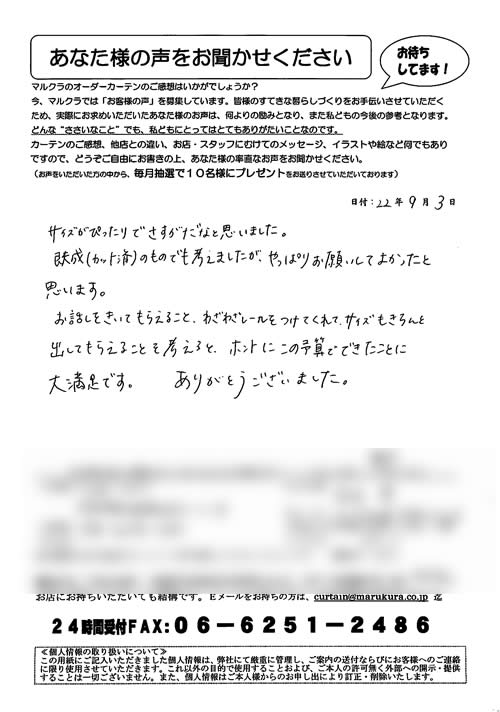 あなた様の声をお聞かせください
お待ち
してます！
マルクラのオーダーカーテンのご感想はいかがでしょうか？
今、マルクラでは「お客様の声」を募集しています。皆様のすてきな暮らしづくりをお手伝いさせていただく
ため、実際にお求めいただいたあなた様のお声は、何よりの励みとなり、また私どもの今後の参考となります。
どんな“ささいなこと”でも、私どもにとってはとてもありがたいことなのです。
カーテンのご感想、他店との違い、お店・スタッフにむけてのメッセージ、イラストや絵など何でもあり
ですので、どうぞご自由にお書きの上、あなた様の率直なお声をお聞かせください。
（お声をいただいた方の中から、毎月抽選で１０名様にプレゼントをお送りさせていただいております）
日付：22年9月3日
サイズがぴったりでさすがだなと思いました。
既成(カット済)のものでも考えましたが、やっぱりお願いしてよかったと
思います。
お話しをきいてもらえること、わざわざレールをつけてくれて、サイズもきちんと
出してもらえることを考えると、ホントにこの予算でできたことに
大満足です。 ありがとうございました。
お店にお持ちいただいても結構です。Ｅメールをお持ちの方は、curtain@marukura.co.jp 迄
２４時間受付ＦＡＸ：０６－６２５１－２４８６
≪個人情報の取り扱いについて≫
この用紙にご記入いただきました個人情報は、弊社にて厳重に管理し、ご案内の送付ならびにお客様へのご連絡
に限り使用させていただきます。これ以外の目的で使用することおよび、ご本人の許可無く外部への開示・提供
することは一切ございません。また、個人情報はご本人様からのお申し出により訂正・削除いたします。